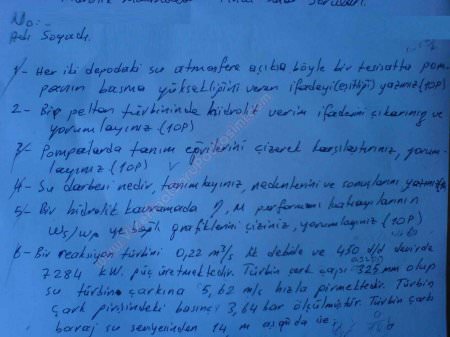 No:-
Adı Soyadı.
1- Her iki depodaki su atmosfere açıksa böyle bir tesisatta pom-
panın basma yüksekliğini veren ifadeyi(eşitliği) yazınız(10P)
2- Bir pelton türbininde hidrolik verim ifadesini çıkarınız ve
yorumlayınız (10P)
3- Pompalarda tanım eğrilerini çizerek karşılaştırınız, yorum-
layınız (10P)
4- Su darbesi nedir, tanımlayınız, nedenlerini ve sonuçlarını yazınız
5- Bir hidrolik kavramada η, M performans katsayılarının
Ws/Wp ye bağlı grafiklerini çiziniz, yorumlayınız (10P)
6- Bir reaksiyon türbini 0,22 m³/s lik debide ve 450 d/d devirde
7284 kW. güç üretmektedir. Türbin çark çapı 325 mm olup
su türbin çarkına 5,62 m/s hızla girmektedir. Türbin
çark girişindeki basınç 3,64 bar ölçülmüştür. Türbin çarkı
baraj su seviyesinden 14 m aşağıda ise